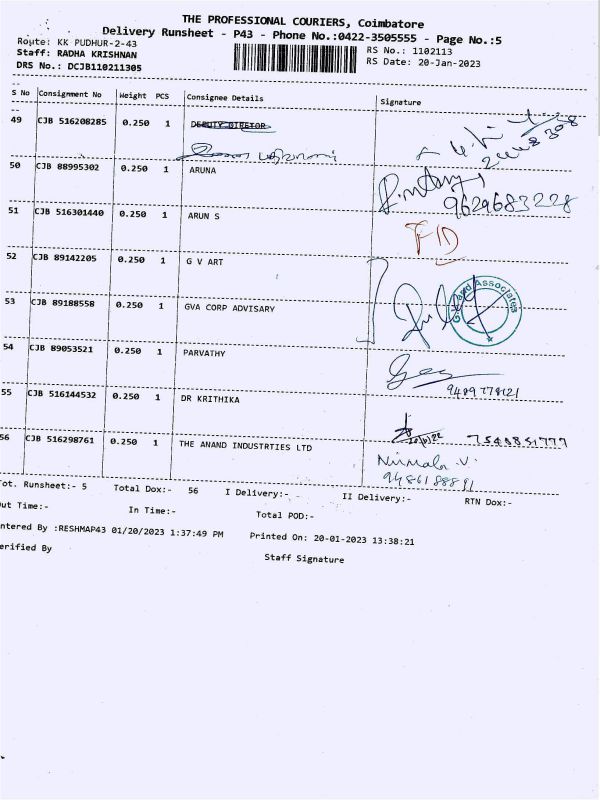 THE PROFESSIONAL COURIERS, Coimbatore
Delivery Runsheet - P43 - Phone No.:0422-3505555 - Page No.:5
Route: KK PUDHUR-2-43
RS No.: 1102113
Staff: RADHA KRISHNAN
RS Date: 20-Jan-2023
DRS No.: DCJB110211305
S No Consignment No Weight PCS Consignee Details Signature
49 CJB 516208285 0.250 1 DEPUTY DIRETOR
50 CJB 88995302 0.250 1 ARUNA
9629683228
51 CJB 516301440 0.250 1 ARUN S
52 CJB 89142205 0.250 1 G V ART
53 CJB 89188558 0.250 1 GVA CORP ADVISARY
and Associates
54 CJB 89053521 0.250 1 PARVATHY
55 CJB 516144532 0.250 1 DR KRITHIKA
56 CJB 516298761 0.250 1 THE ANAND INDUSTRTIES LTD
Nirmala V.
Tot. Runsheet:- 5 Total Dox:- 56 I Delivery:- II Delivery:- RTN Dox:-
Out Time:- In Time:- Total POD:-
ntered By :RESHMAP43 01/20/2023 1:37:49 PM Printed On: 20-01-2023 13:38:21
erified By Staff Signature